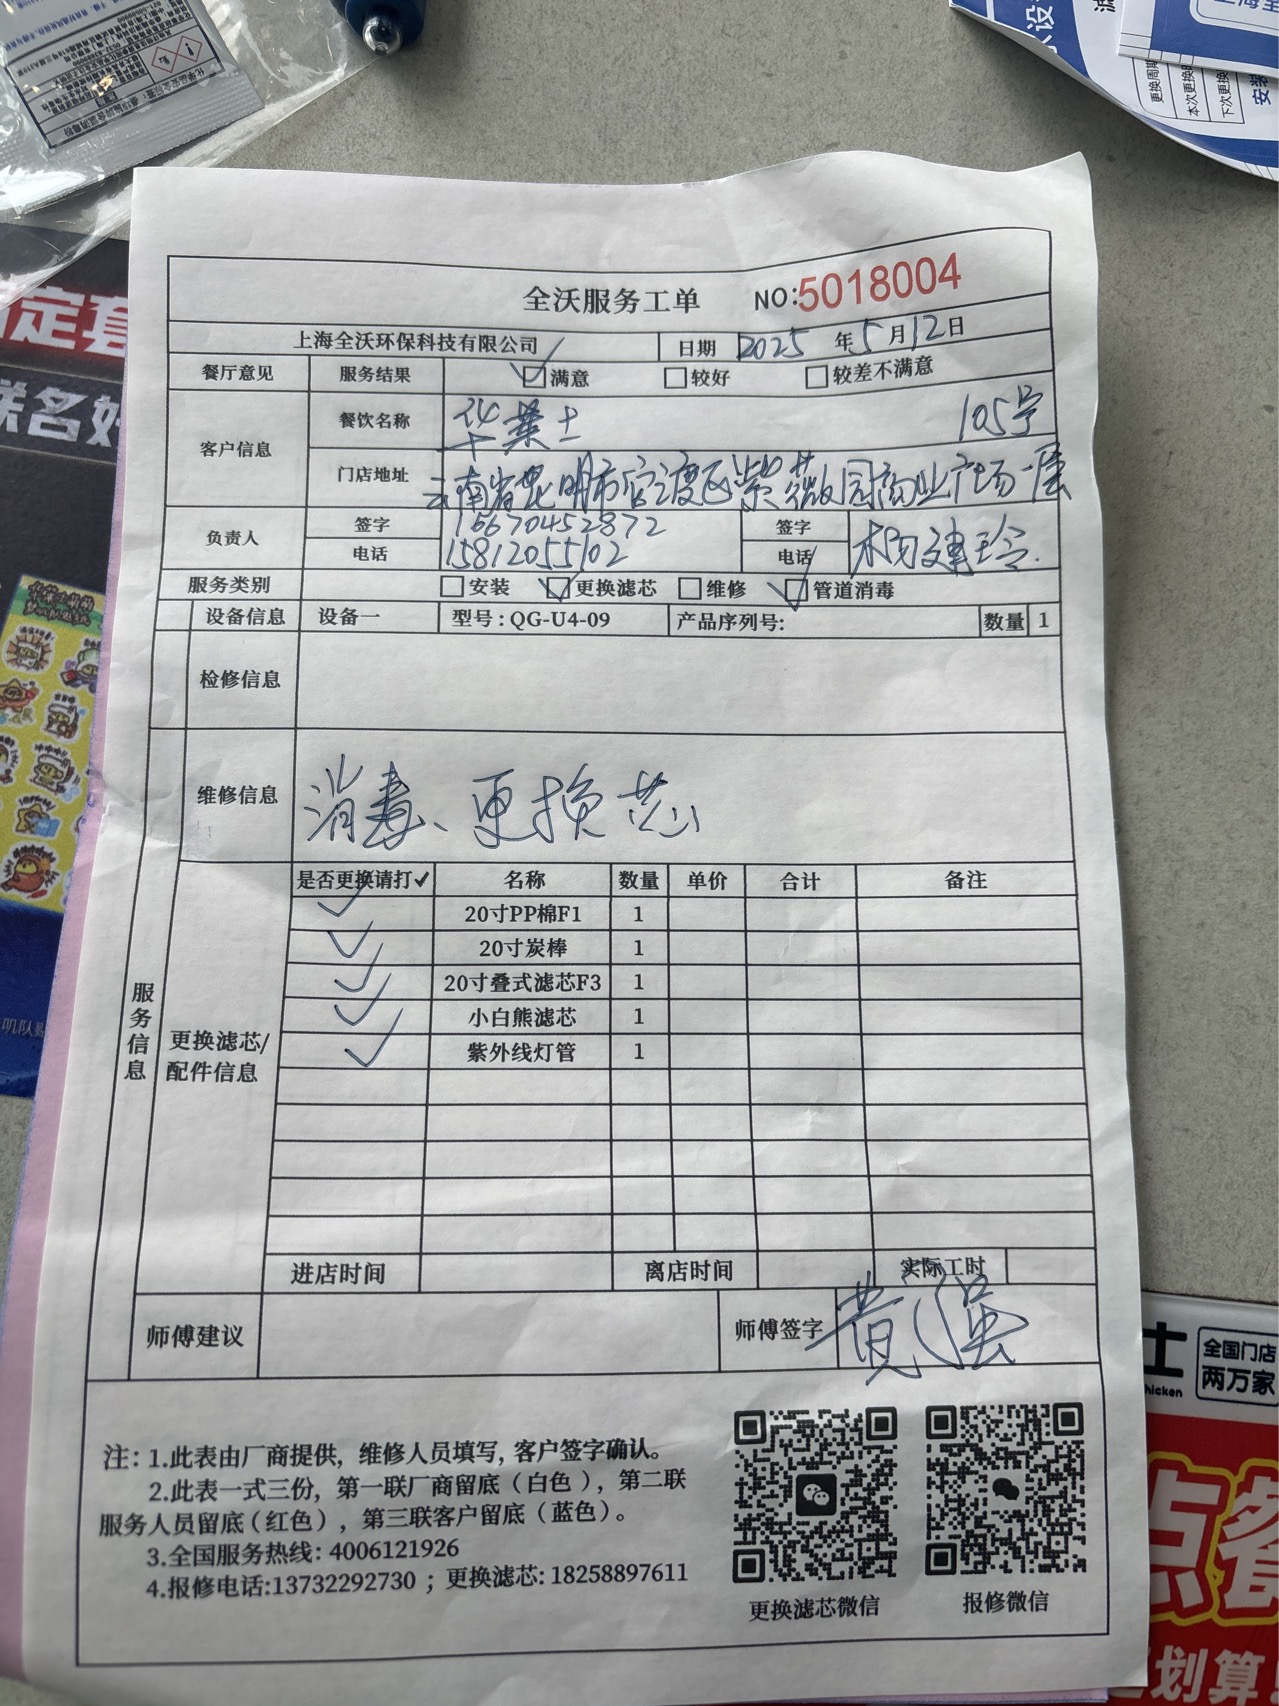 全沃服务工单 NO:5018004
上海全沃环保科技有限公司 日期 2025年5月12日
餐厅意见 服务结果 满意 较好 较差不满意
客户信息 餐饮名称 华莱士 105号
门店地址 云南省昆明市官渡区紫薇园商业广场一层
负责人 签字 15670452872 签字
电话 15812055102 电话 杨建玲.
服务类别 安装 更换滤芯 维修 管道消毒
设备信息 设备一 型号:QG-U4-09 产品序列号: 数量 1
检修信息
维修信息 消毒、更换芯
服务信息
更换滤芯/配件信息
是否更换请打✓ 名称 数量 单价 合计 备注
✓ 20寸PP棉F1 1
✓ 20寸炭棒 1
✓ 20寸叠式滤芯F3 1
✓ 小白熊滤芯 1
✓ 紫外线灯管 1
进店时间 离店时间 实际工时
师傅建议 师傅签字 黄强
注:1.此表由厂商提供,维修人员填写,客户签字确认。
2.此表一式三份,第一联厂商留底(白色),第二联
服务人员留底(红色),第三联客户留底(蓝色)。
3.全国服务热线:4006121926
4.报修电话:13732292730;更换滤芯:18258897611
更换滤芯微信 报修微信
更换周期
本次更换
下次更换
定套
联名好
士
hicken
全国门店
两万家
点餐
划算